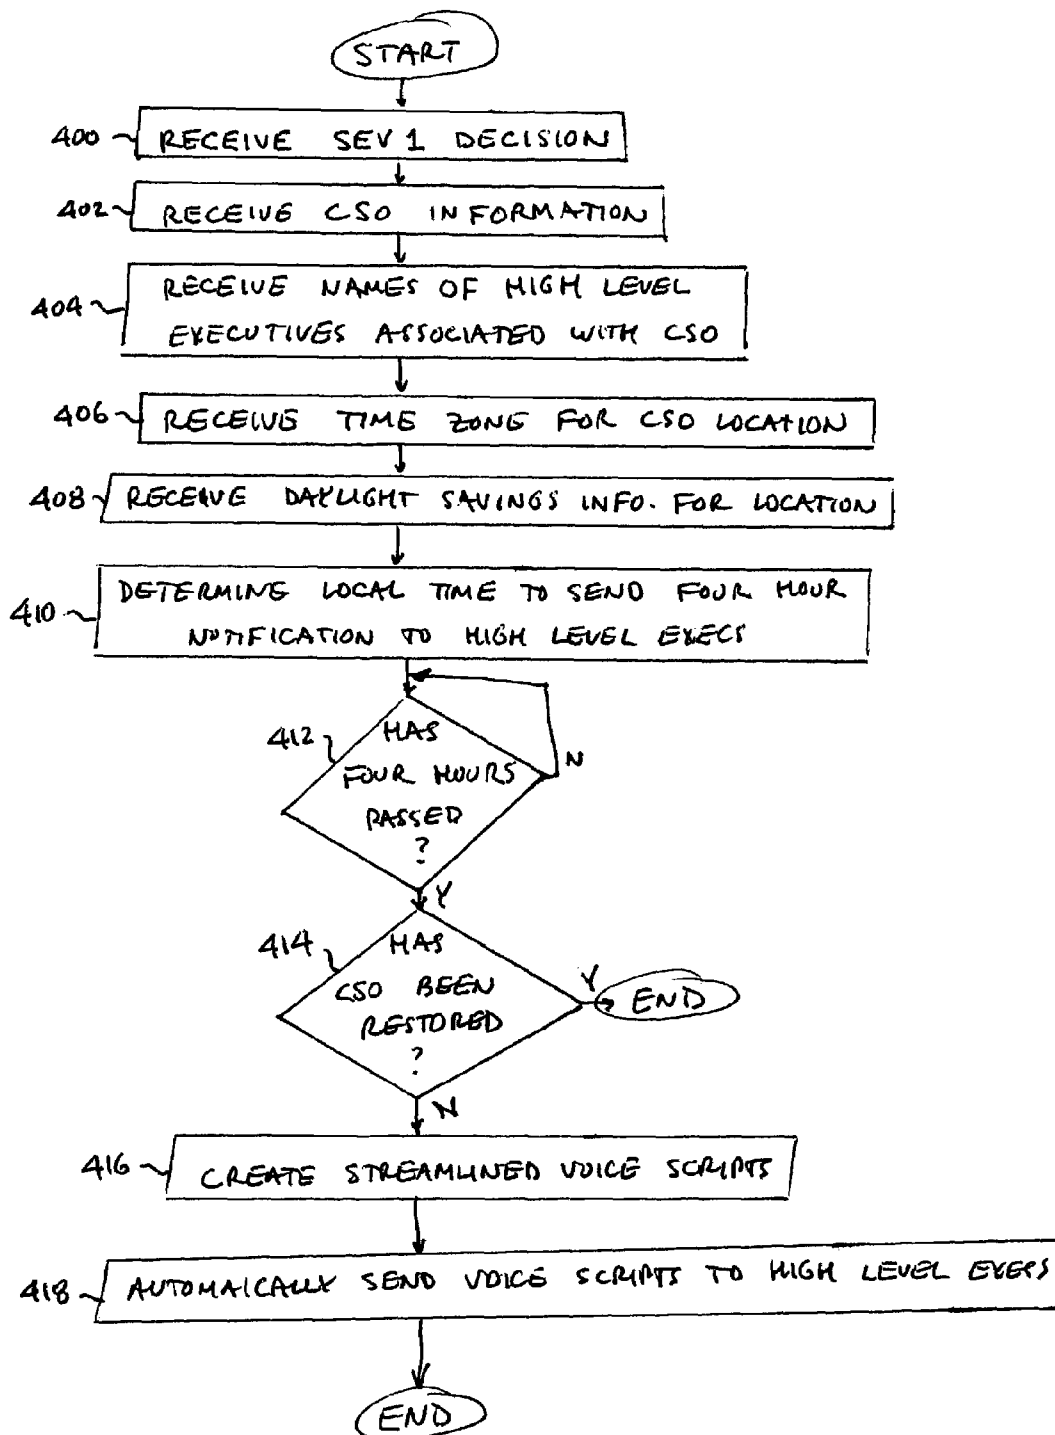 START
400 RECEIVE SEV 1 DECISION
402 RECEIVE CSO INFORMATION
404 RECEIVE NAMES OF HIGH LEVEL
EXECUTIVES ASSOCIATED WITH CSO
406 RECEIVE TIME ZONE FOR CSO LOCATION
408 RECEIVE DAYLIGHT SAVINGS INFO. FOR LOCATION
410 DETERMINE LOCAL TIME TO SEND FOUR HOUR
NOTIFICATION TO HIGH LEVEL EXECS
412 HAS
FOUR HOURS
PASSED
?
N
Y
414 HAS
CSO BEEN
RESTORED
?
Y
END
N
416 CREATE STREAMLINED VOICE SCRIPTS
418 AUTOMAICALLY SEND VOICE SCRIPTS TO HIGH LEVEL EXECS
END